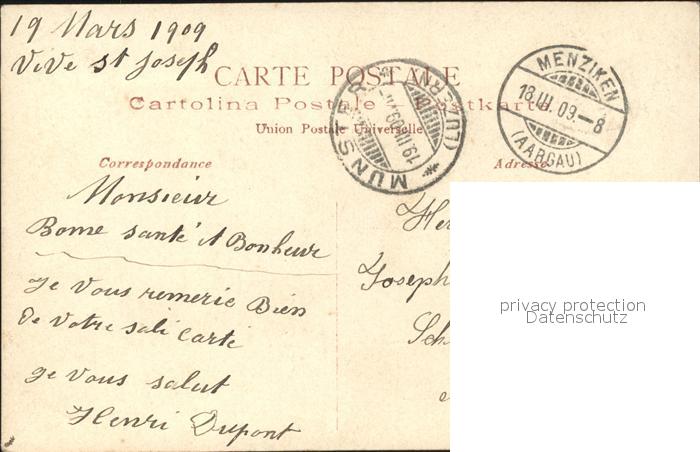 19 Mars 1909
Vive st Joseph
CARTE POSTALE
Cartolina Postale Postkarte
Union Postale Universelle
MUNSTER (LUZERN)
19.III.09.VII-
MENZIKEN
18.III.09.-8
(AARGAU)
Correspondance
Adresse
Monsieur
Bonne santé et Bonheur
Je Vous remerie Bien
de Votre joli Carte
je vous salut
Henri Dupont
Her
Joseph
Sch
privacy protection
Datenschutz